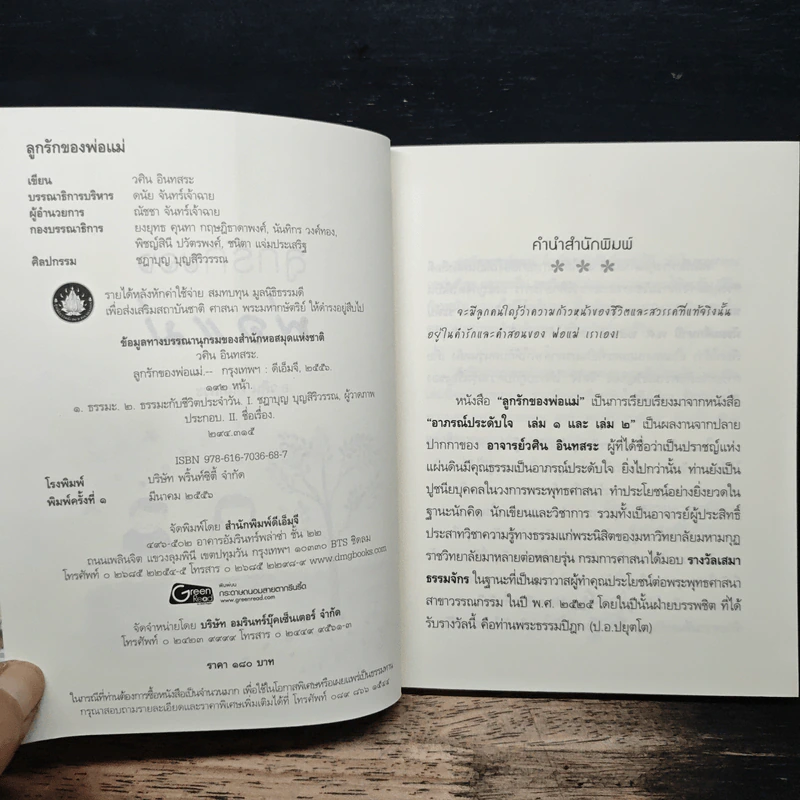 ลูกรักของพ่อแม่
เขียน วศิน อินทสระ
บรรณาธิการบริหาร ดนัย จันทร์เจ้าฉาย
ผู้อำนวยการ ณัชชา จันทร์เจ้าฉาย
กองบรรณาธิการ ยงยุทธ คุนทา กฤษฎิธาดาพงศ์, นันทิกร วงค์ทอง,
พิชญ์สินี ปวัตรพงศ์, ชนิตา แจ่มประเสริฐ
ศิลปกรรม ชฎาบุญ บุญสิริวรรณ
รายได้หลังหักค่าใช้จ่าย สมทบทุน มูลนิธิธรรมดี
เพื่อส่งเสริมสถาบันชาติ ศาสนา พระมหากษัตริย์ ให้ดำรงอยู่สืบไป
ข้อมูลทางบรรณานุกรมของสำนักหอสมุดแห่งชาติ
วศิน อินทสระ.
ลูกรักของพ่อแม่.-- กรุงเทพฯ : ดีเอ็มจี, ๒๕๕๖.
๑๙๒ หน้า.
๑. ธรรมะ. ๒. ธรรมะกับชีวิตประจำวัน. I. ชฎาบุญ บุญสิริวรรณ, ผู้วาดภาพ
ประกอบ. II. ชื่อเรื่อง.
๒๙๔.๓๑๕
ISBN 978-616-7036-68-7
โรงพิมพ์ บริษัท พริ้นท์ซิตี้ จำกัด
พิมพ์ครั้งที่ ๑ มีนาคม ๒๕๕๖
จัดพิมพ์โดย สำนักพิมพ์ดีเอ็มจี
๔๙๖-๕๐๒ อาคารอัมรินทร์พลาซ่า ชั้น ๒๒
ถนนเพลินจิต แขวงลุมพินี เขตปทุมวัน กรุงเทพฯ ๑๐๓๓๐ BTS ชิดลม
โทรศัพท์ ๐ ๒๖๘๕ ๒๒๕๔-๕ โทรสาร ๐ ๒๖๘๕ ๒๒๙๘-๙ www.dmgbooks.com
Green Read
พิมพ์บน
กระดาษถนอมสายตากรีนรี้ด
www.greenread.com
จัดจำหน่ายโดย บริษัท อมรินทร์บุ๊คเซ็นเตอร์ จำกัด
โทรศัพท์ ๐ ๒๔๒๓ ๙๙๙๙ โทรสาร ๐ ๒๔๔๙ ๙๕๖๑-๓
ราคา ๑๘๐ บาท
ในกรณีที่ท่านต้องการซื้อหนังสือเป็นจำนวนมาก เพื่อใช้ในโอกาสพิเศษหรือเผยแพร่เป็นธรรมทาน
กรุณาสอบถามรายละเอียดและราคาพิเศษเพิ่มเติมได้ที่ โทรศัพท์ ๐๘๙ ๘๖๖ ๑๕๔๔
คำนำสำนักพิมพ์
จะมีลูกคนใดรู้ว่าความก้าวหน้าของชีวิตและสวรรค์ที่แท้จริงนั้น
อยู่ในคำรักและคำสอนของ พ่อแม่ เราเอง!
หนังสือ “ลูกรักของพ่อแม่” เป็นการเรียบเรียงมาจากหนังสือ
“อาภรณ์ประดับใจ เล่ม ๑ และ เล่ม ๒” เป็นผลงานจากปลาย
ปากกาของ อาจารย์วศิน อินทสระ ผู้ที่ได้ชื่อว่าเป็นปราชญ์แห่ง
แผ่นดินมีคุณธรรมเป็นอาภรณ์ประดับใจ ยิ่งไปกว่านั้น ท่านยังเป็น
ปูชนียบุคคลในวงการพระพุทธศาสนา ทำประโยชน์อย่างยิ่งยวดใน
ฐานะนักคิด นักเขียนและวิชาการ รวมทั้งเป็นอาจารย์ผู้ประสิทธิ์
ประสาทวิชาความรู้ทางธรรมแก่พระนิสิตของมหาวิทยาลัยมหามกุฏ
ราชวิทยาลัยมาหลายต่อหลายรุ่น กรมการศาสนาได้มอบ รางวัลเสมา
ธรรมจักร ในฐานะที่เป็นฆราวาสผู้ทำคุณประโยชน์ต่อพระพุทธศาสนา
สาขาวรรณกรรม ในปี พ.ศ. ๒๕๒๕ โดยในปีนั้นฝ่ายบรรพชิต ที่ได้
รับรางวัลนี้ คือท่านพระธรรมปิฎก (ป.อ.ปยุตโต)